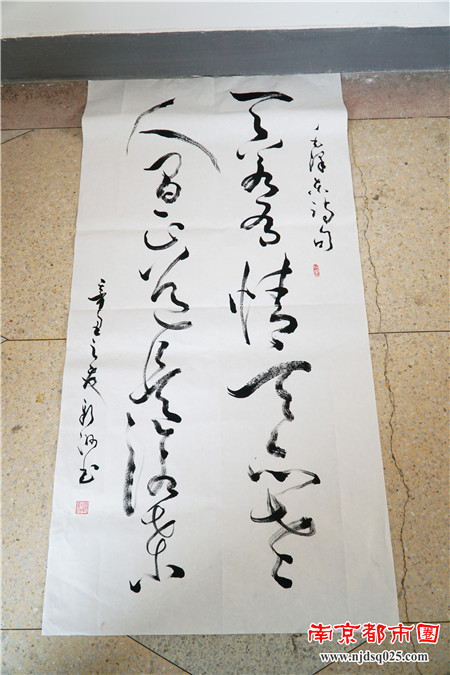 毛泽东诗句
天若有情天亦老
人间正道是沧桑
辛丑之
书
南京都市圈
www.njdsq025.com